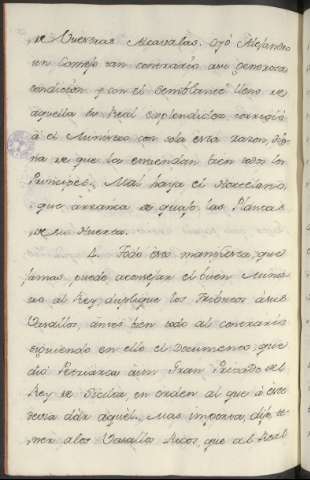 de Vuestras Alcavalas. Oyó Alejandro
un Consejo tan contrario a su generosa
condición y con el semblante lleno de
aquella su Real esplendidez corrigió
á el Ministro con sola esta razon, dig-
na de que la entiendan bien todos los
Principes. Mal haya el Hortelano,
que arranca de quajo las Plantas
de su Huerta.
4. Todo esto manifiesta, que
jamas puede aconsejar el buen Minis-
tro al Rey, duplique los Tributos á sus
Vasallos, antes bien todo al contrario
siguiendo en ello el Documento, que
dio Petriarca á un Gran Privado del
Rey de Sicilia, en orden al que á este
devia dar aquel. Mas importa, dijo, te-
ner a los Vasallos Ricos, que al Real